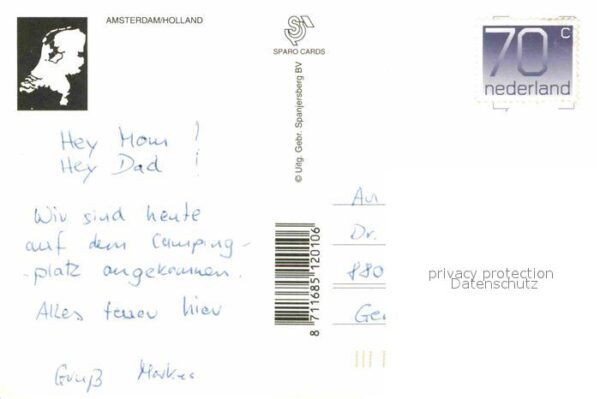 AMSTERDAM/HOLLAND
SPARO CARDS
© Uitg. Gebr. Spanjersberg BV
70 c
nederland
Hey Mom !
Hey Dad !
Wir sind heute
auf dem Camping-
-platz angekommen.
Alles teuer hier
Gruß Markus
An
Dr.
880
Ge
8 711685 120106
privacy protection
Datenschutz